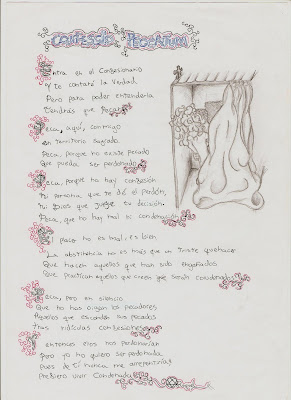 CONFESSIO PECCATUM
Entra en el Confesionario
Y te contaré la Verdad.
Pero para poder entenderla
Tendrás que Pecar
Peca, aquí, conmigo
en territorio sagrado.
Peca, porque no existe pecado
Que pueda ser perdonado
Peca, porque no hay confesión
Ni persona que te dé el perdón,
Ni Dios que juzge tu decisión.
Peca, que no hay mal ni condenación
El pecar no es mal, es bien
La abstinencia no es más que un triste quehacer
Que hacen aquellos que han sido engañados
Que practican aquellos que creen que serán condenados
Peca, pero en silencio
Que no nos oigan los pecadores
Aquellos que esconden sus pecados
Tras ridículas confesiones
Y entonces ellos nos perdonarían
Pero yo no quiero ser perdonada
Pues de Ti nunca me arrepentiría
Prefiero vivir Condenada